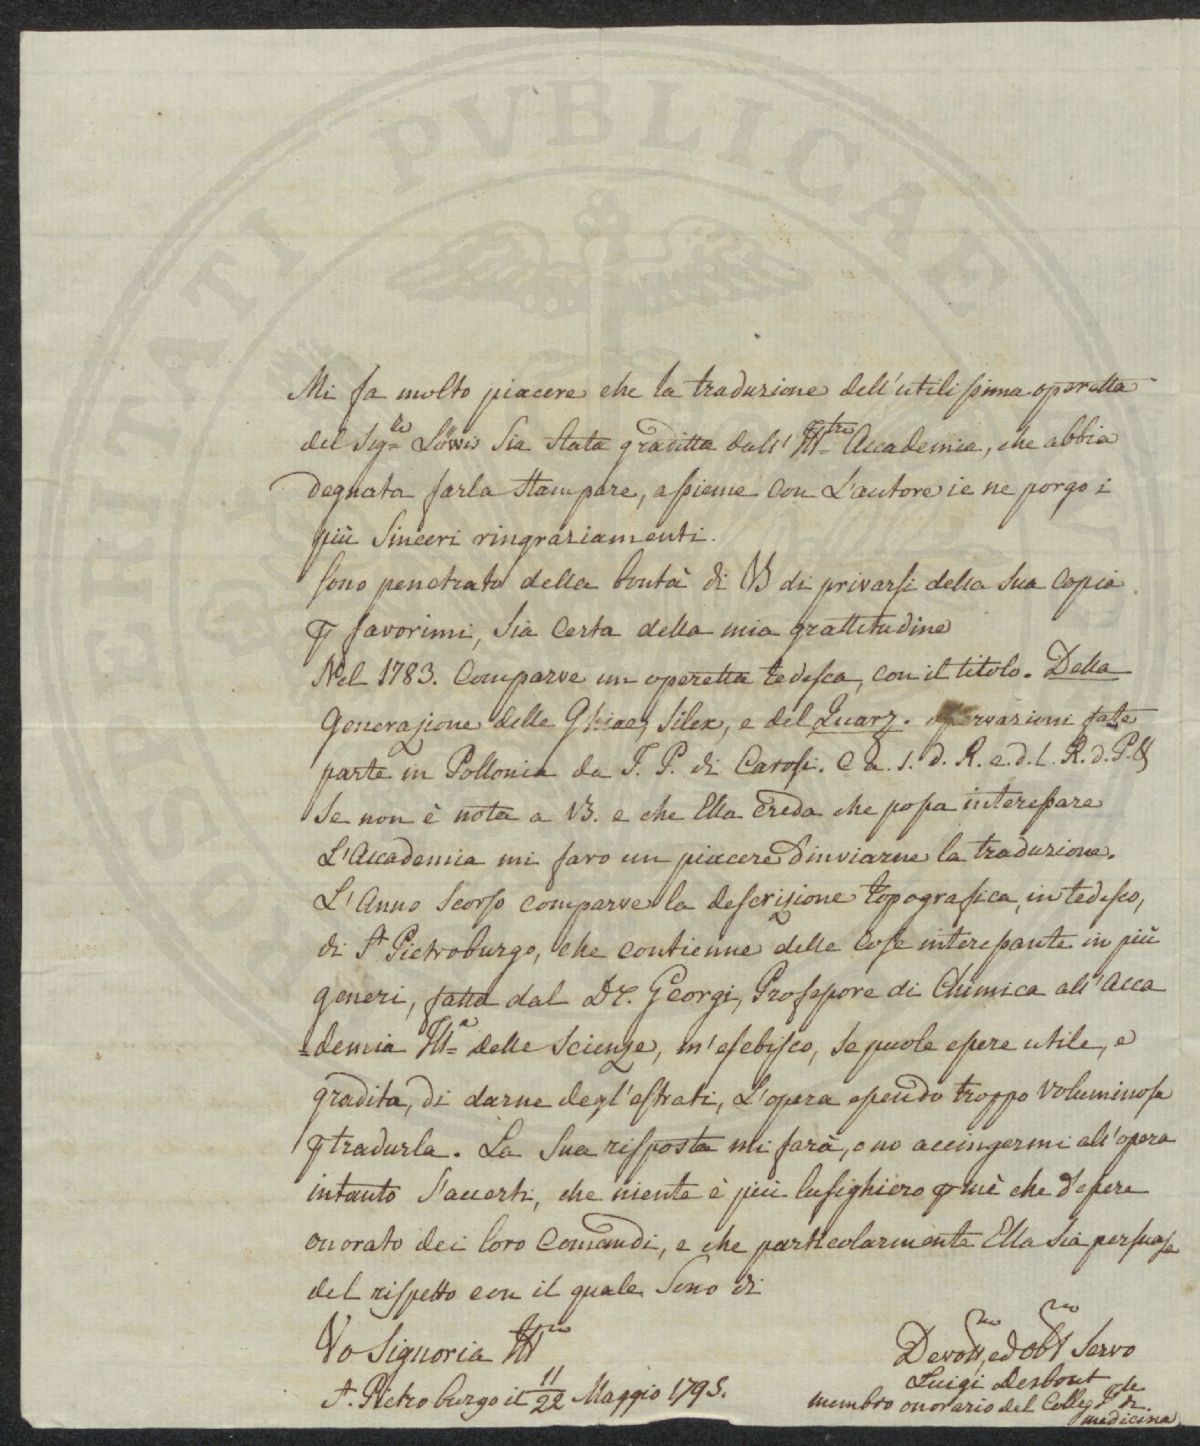 Mi fa molto piacere che la traduzione dell'utilissima operetta
del Sig.le Löwis sia stata graditta dall' Ill.tre Accademia, che abbia
degnata farla stampare, assieme con L'autore ie ne porgo i
più sinceri ringraziamenti.
sono penetrato della bontà di VS di privarsi della sua copia
p favorirmi, sia certa della mia grattitudine
Nel 1783. Comparve un operetta tedesca, con il titolo. Della
Generazione delle Ghiae, Silex, e del Quarz. osservazioni fate
parte in Pollonia da J. P. di Carosi. C d. S. d. R. e. d. l. R. d. P. &
se non è nota a VS. e che Ella creda che possa interessare
L'Accademia mi faro un piacere d'inviarne la traduzione.
L'Anno scorso comparve la descrizione topografica, in tedesco,
di St Pietroburgo, che contienne delle cose interessante in più
generi, fatta dal Dr. Georgi, Professore di Chimica all'Acca
=demia Ill=a delle Scienze, m'esebisco, se puole essere utile, e
gradita, di darne degl'estrati, L'opera essendo troppo voluminosa
p tradurla. La sua risposta mi farà, o no accingermi all'opera
intanto s'accerti, che niente è più lusighiero p mè che d'essere
onorato dei loro Comandi, e che particolarmente Ella sia persuasa
del rispetto con il quale sono di
Vo Signoria Ill.tre
St. Pietroburgo il 11/22 Maggio 1795.
Devotmo, ed obbmo Servo
Luigi Desbout
membro onorario del Colleg. di
medicina